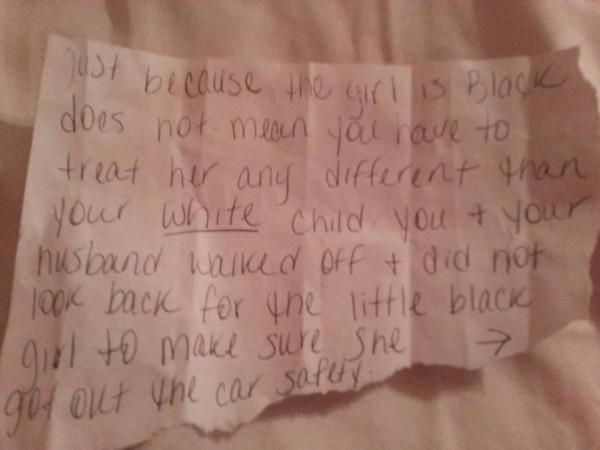 just because the girl is Black
does not mean you have to
treat her any different than
your white child you + your
husband walked off + did not
look back for the little black
girl to make sure she →
got out the car safety.